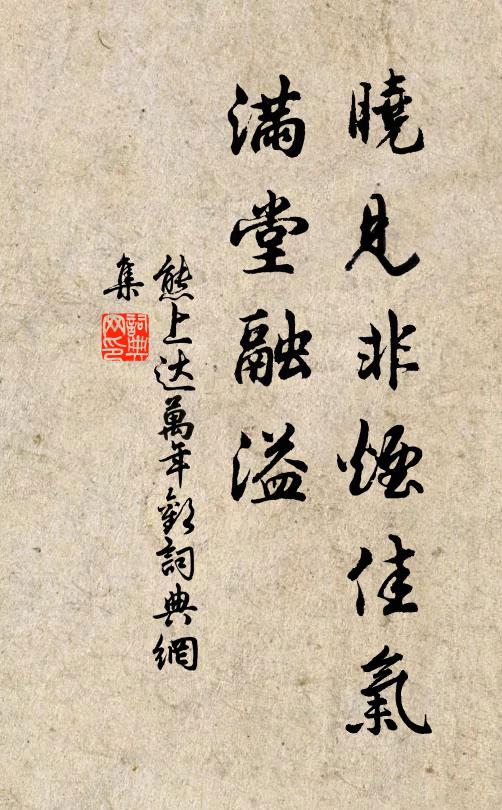 曉見非煙佳氣
滿堂融溢
熊上达萬年歡詞典網
集
詞典
网印